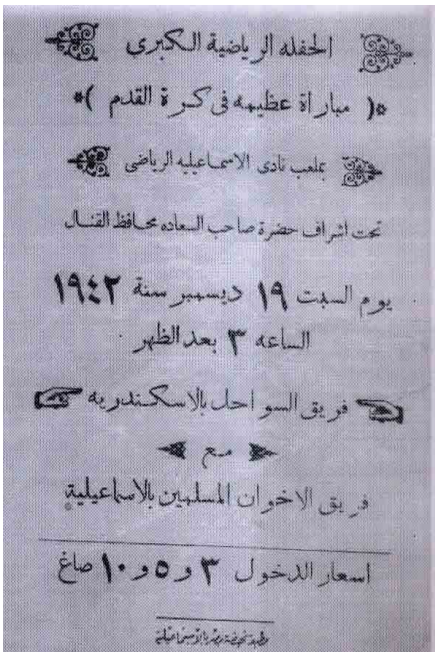 الحفله الرياضية الكبرى
*( مباراة عظيمه فى كرة القدم )*
بملعب نادى الاسماعيليه الرياضى
تحت اشراف حضرة صاحب السعاده محافظ القنال
يوم السبت ١٩ ديسمبر سنة ١٩٤٢
الساعه ٣ بعد الظهر
فريق السواحل بالاسكندريه
مع
فريق الاخوان المسلمين بالاسماعيلية
اسعار الدخول ٣ و ٥ و ١٠ صاغ
بالاسماعيلية